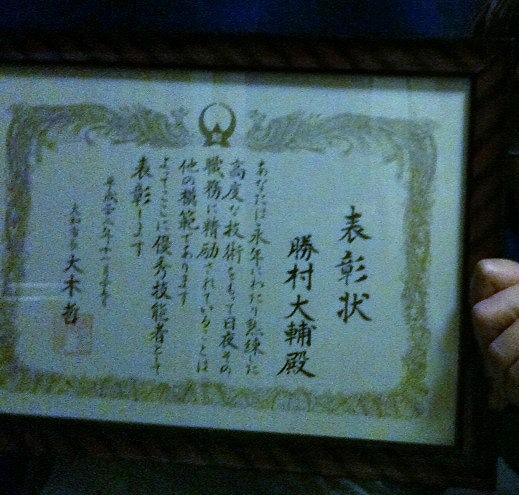 表彰状
勝村大輔殿
あなたは永年にわたり熟練した
高度な技術をもって日夜その
職務に精励されていることは
他の模範であります
よってここに優秀技能者として
表彰します
平成 年十一月 日
大和市長 大木哲